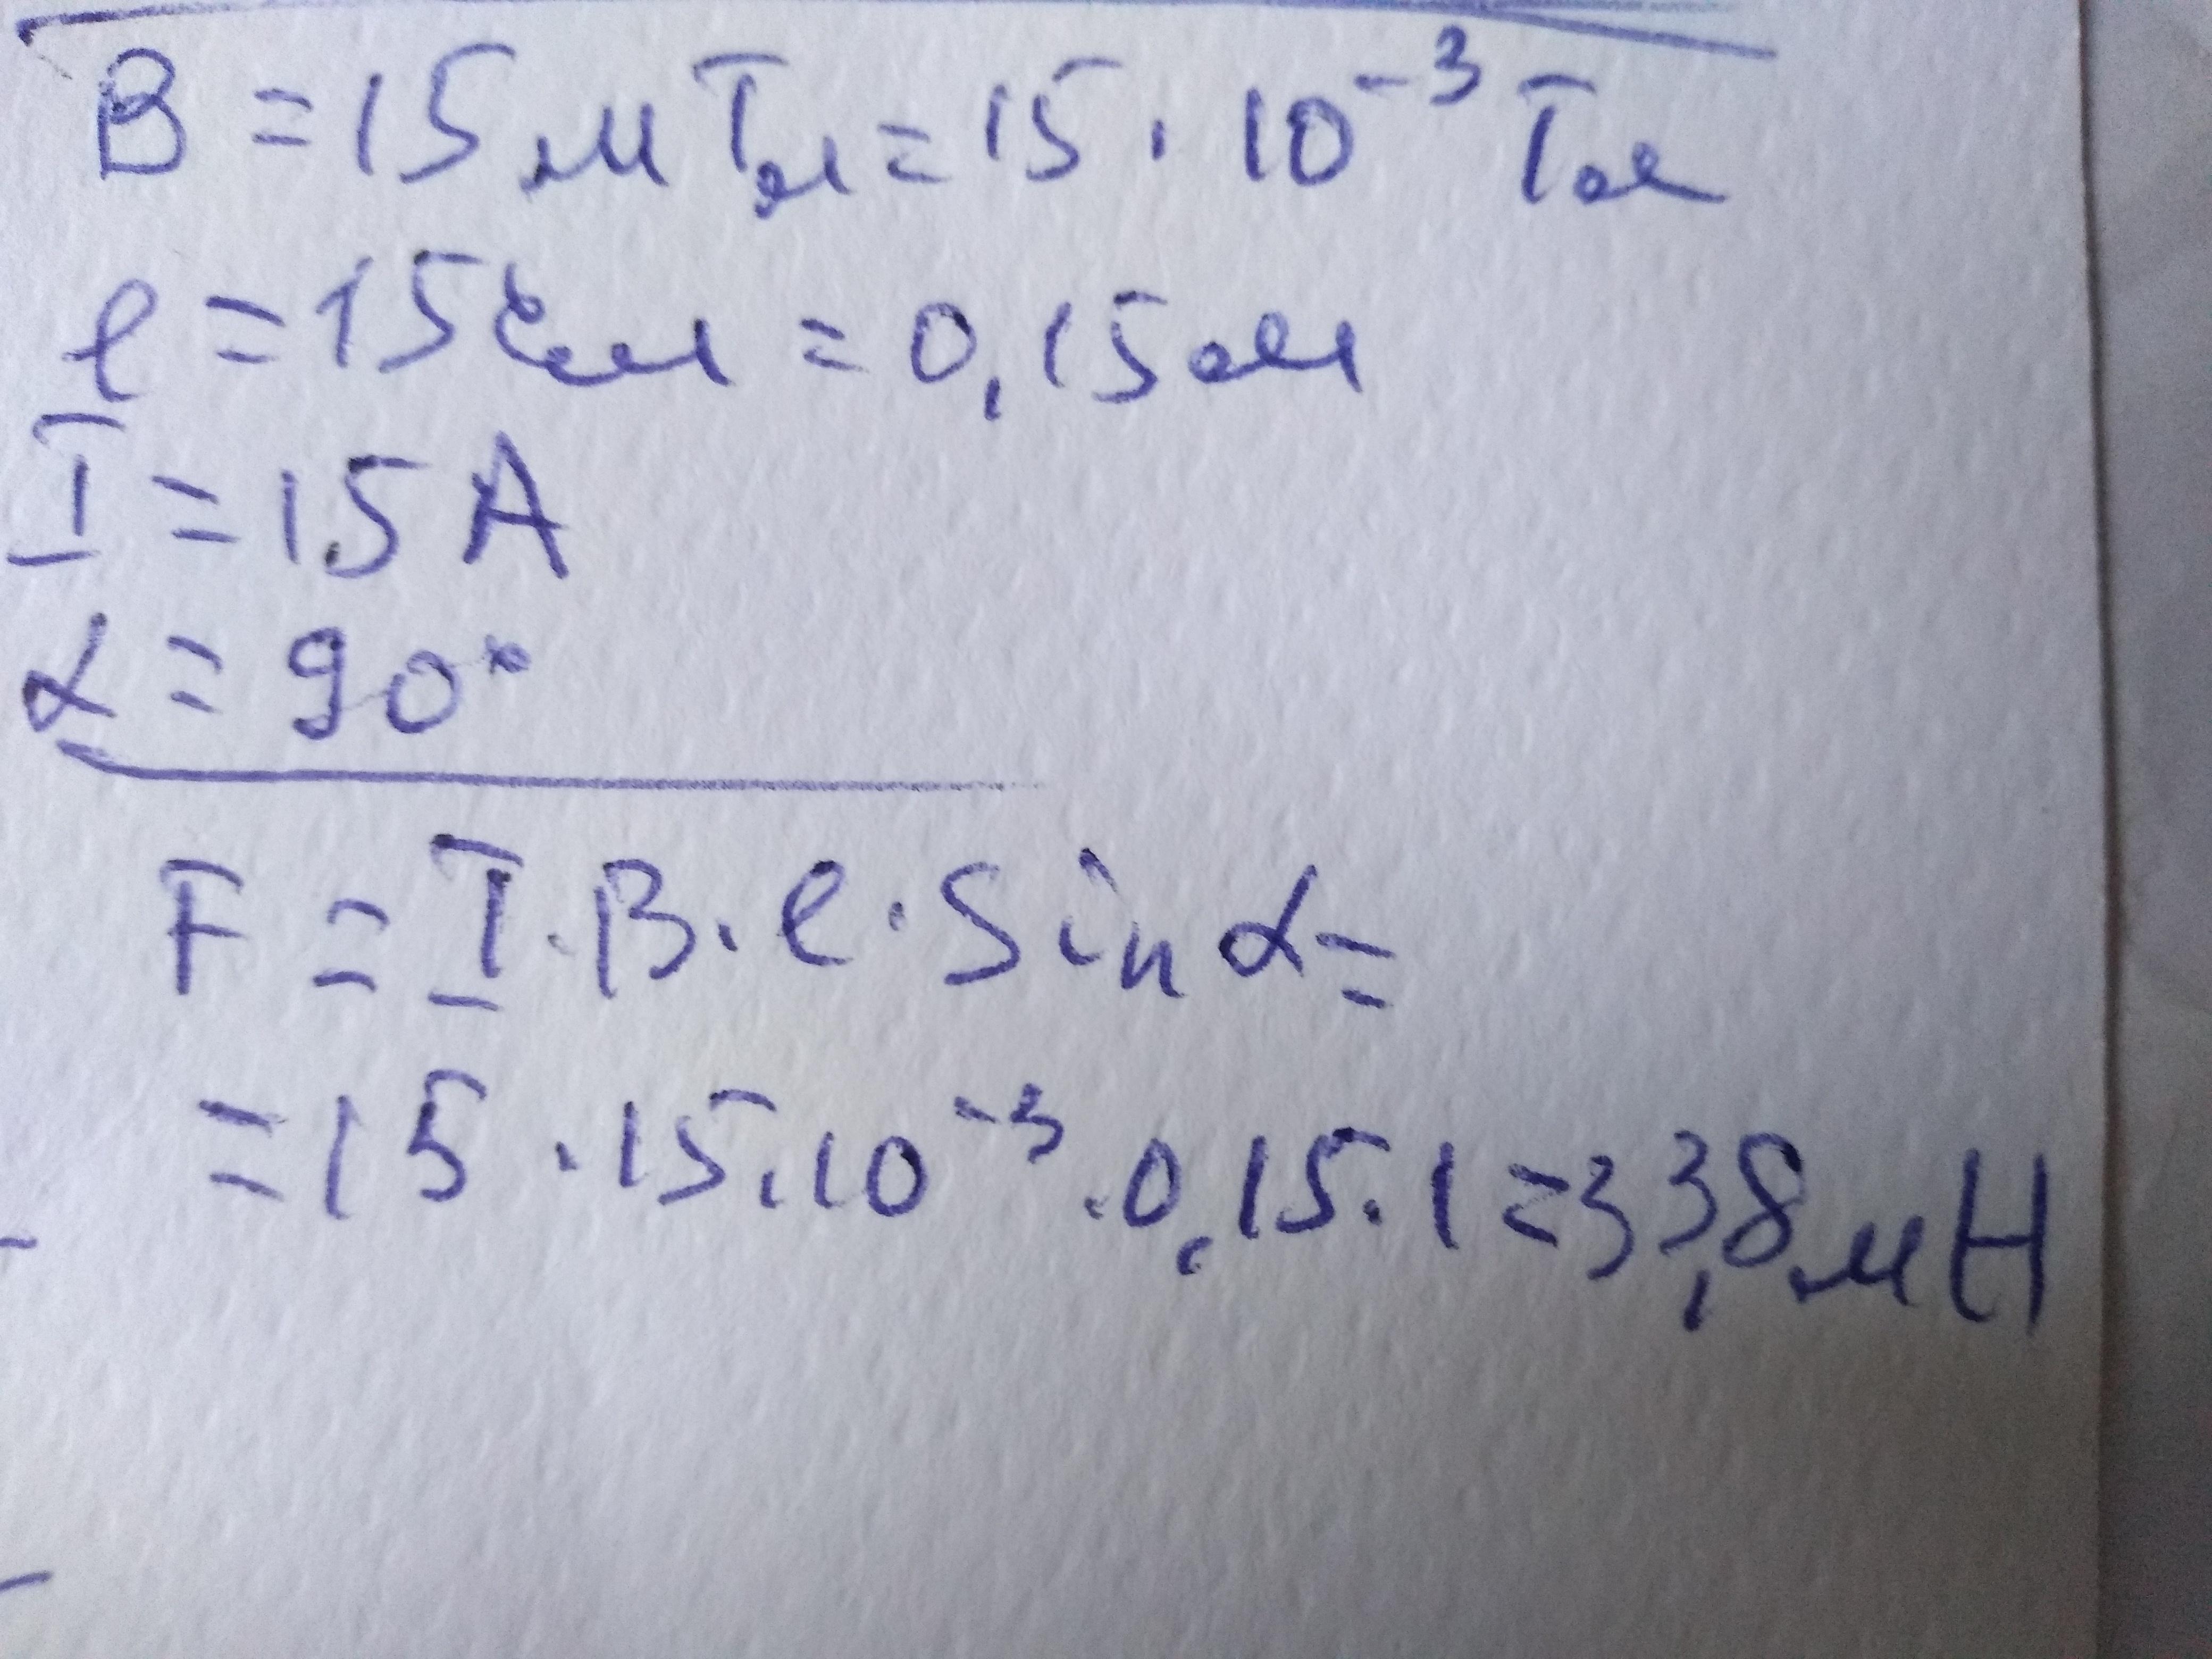 B = 15 мТл = 15 · 10⁻³ Тл
l = 15 см = 0,15 м
I = 15 А
α = 90°
F = I · B · l · Sin α =
= 15 · 15 · 10⁻³ · 0,15 · 1 = 33,8 мН